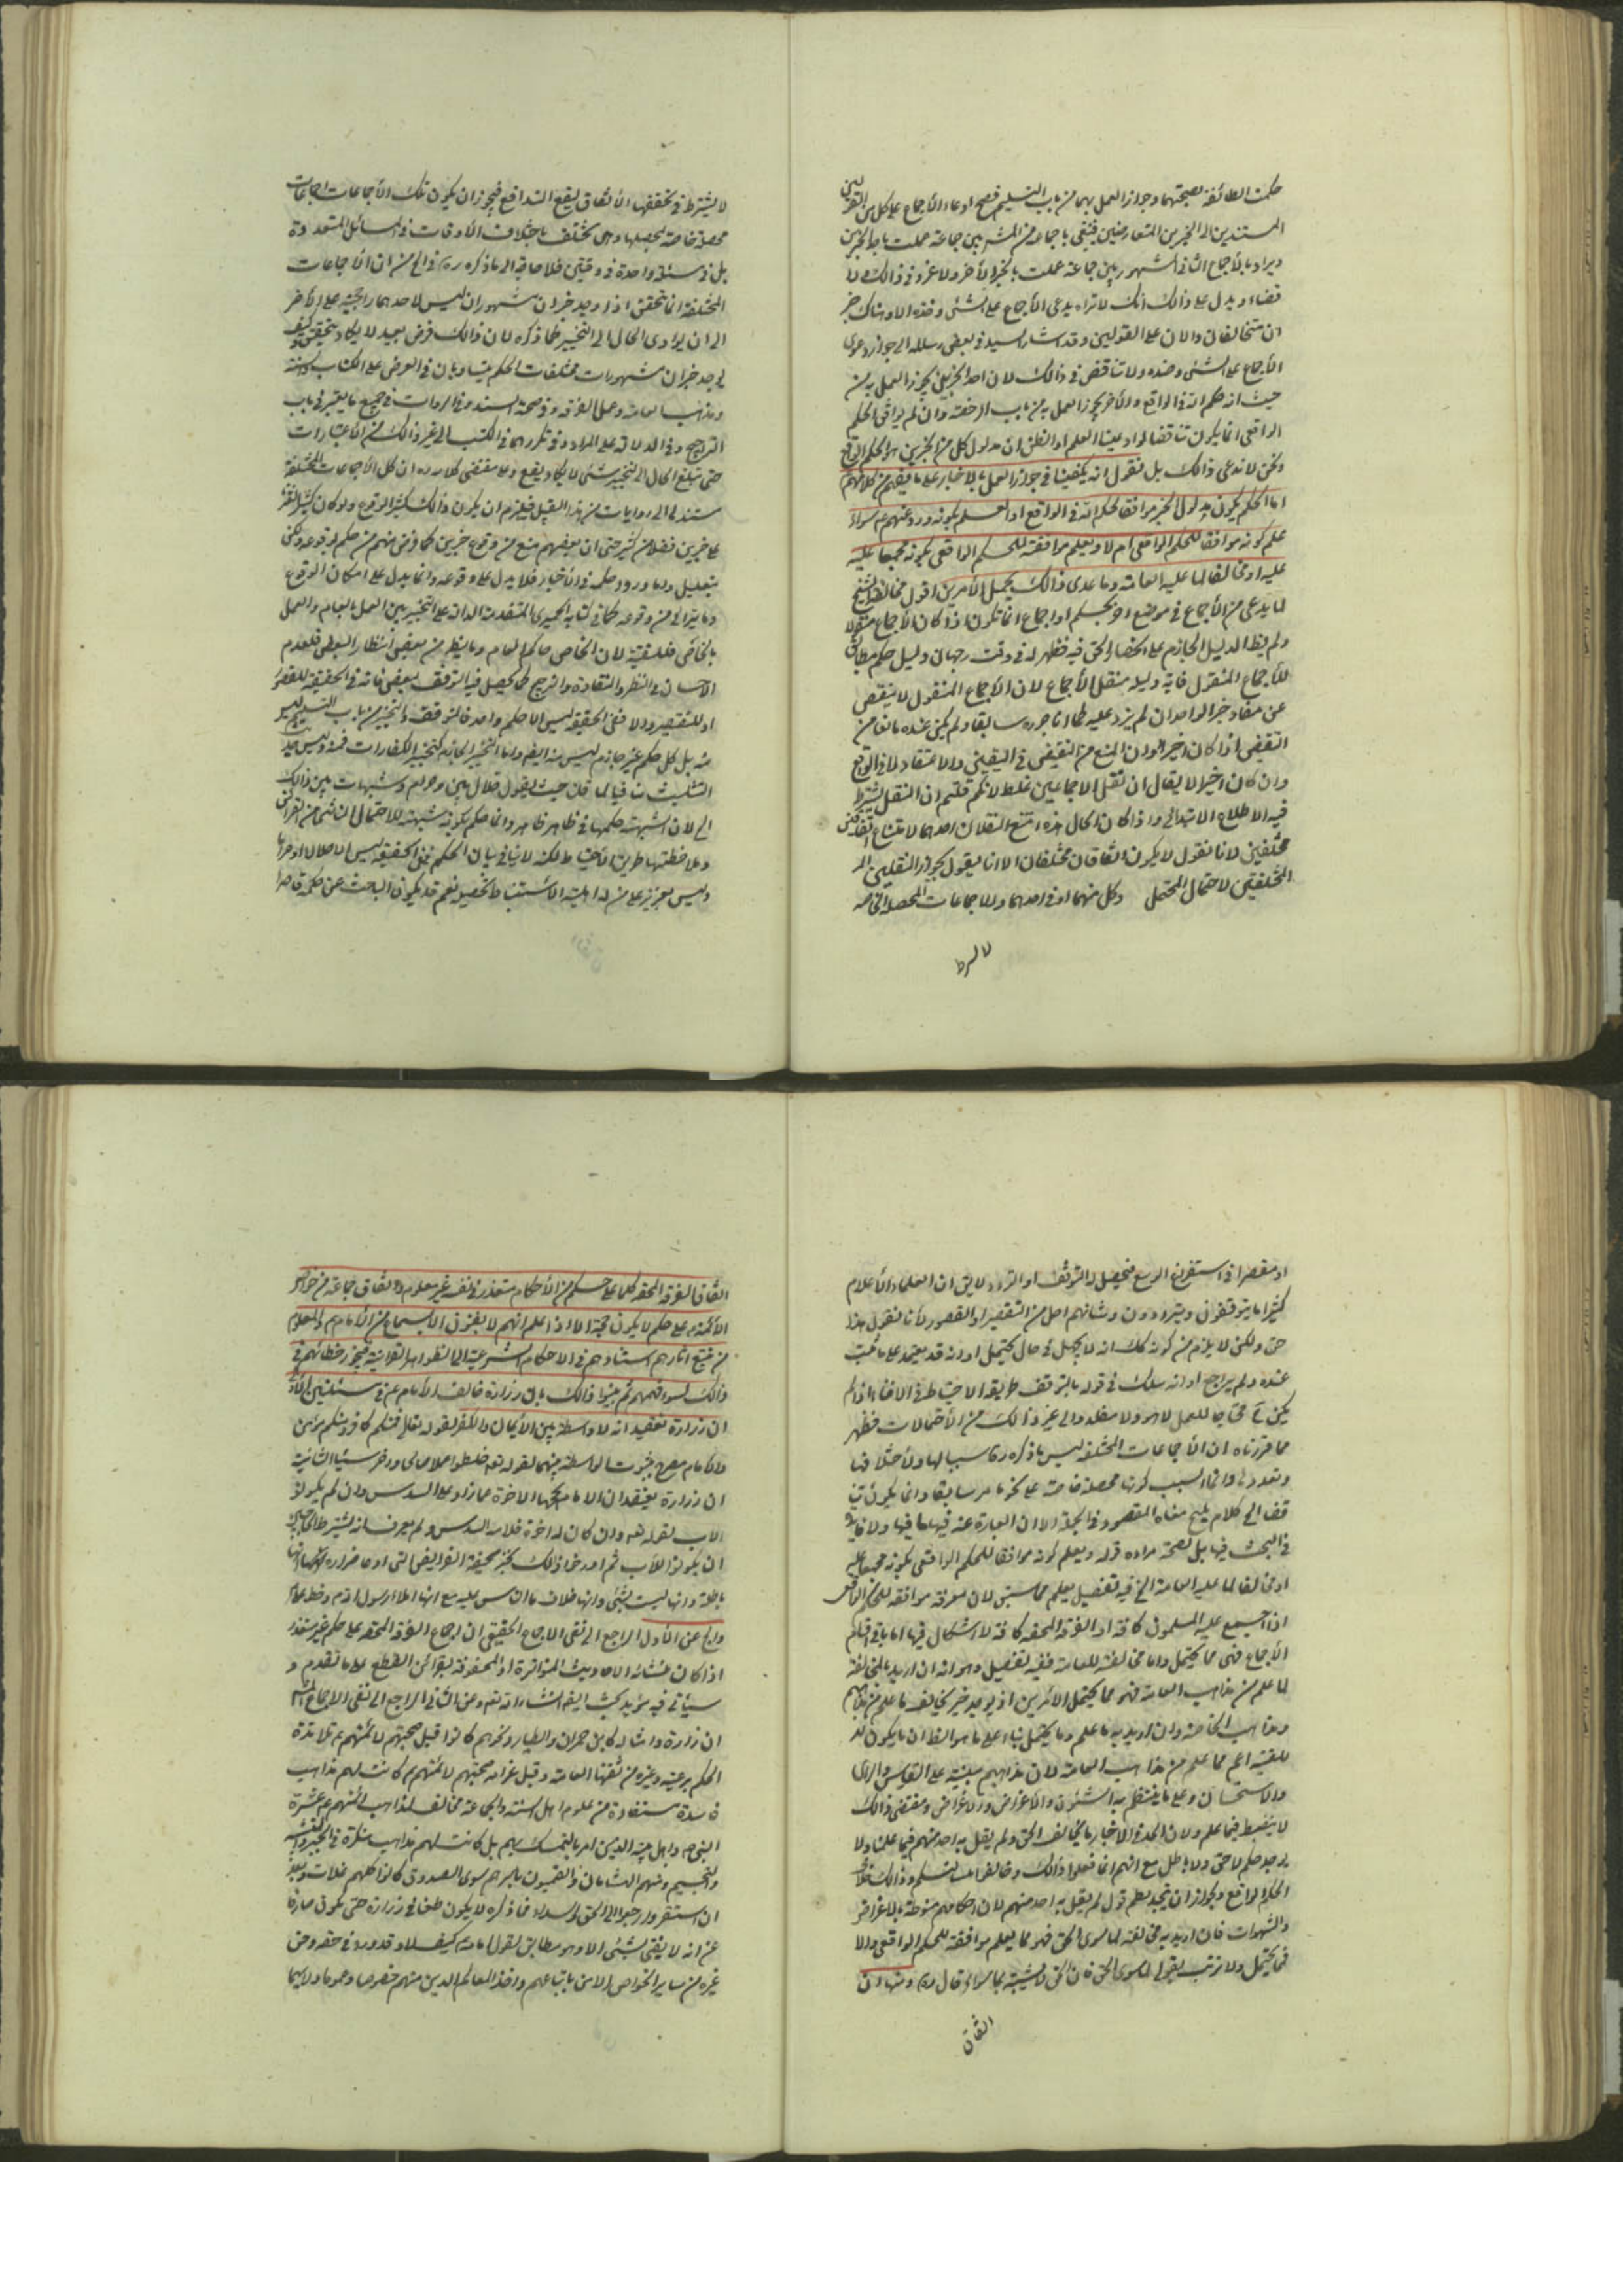 حكمت الطائفة بصحتهما وجواز العمل بهما من باب التسليم فصح ادعاء الأجماع على كل من القولين
المستندين الى الخبرين المتعارضين
ويراد بالأجماع الثاني المشهور بين جماعة عملت بالخبر الأخر ولا غرو في ذالك ولا
ويدل على ذالك انك لا تراه يدعي الأجماع على الشئ وضده الا وهناك خبر
ان متخالفان دالان على القولين وقد اشار السيد في بعض رسائله الى جواز دعوى
الأجماع على الشئ وضده ولا تناقض في ذالك لان احد الخبرين يجوز العمل به من
حيث انه حكم الله في الواقع والأخر يجوز العمل به من باب الرخصة وان لم يوافق الحكم
الواقعي انما يكون تناقضا لو ادعينا العلم او الظن ان مدلول كل من الخبرين هو الحكم الواقعي
ونحن لا ندعي ذالك بل نقول انه يكفينا في جواز العمل بالاخبار على ما يفهم من كلامهم
اما الحكم بكون مدلول الخبر موافقا لحكم الله في الواقع او العلم بكونه ورد عنهم ع سواء
علم كونه موافقا للحكم الواقعي ام لا ويعلم موافقته للحكم الواقعي بكونه مجمعا عليه
عليه او مخالفا لما عليه العامة وما عدى ذالك يحتمل الأمرين اقول مخالفة الشيخ
لما يدعي من الأجماع في موضع اخر بحكم او اجماع انما تكون اذا كان الأجماع منقولا
للأجماع المنقول فانه دليله منقل الأجماع لان الأجماع المنقول لا ينقص
عن مفاد خبر الواحد ان لم يزد عليه
وان كان اخيرا لا يقال ان نقل الاجماعين غلط لانكم قلتم ان النقل يشترط
فيه الاطلاع الابتدائي واذا كان الحال هذه امتنع النقلان احدهما لامتناع
مختلفين لانا نقول لا يكون اتفاقان مختلفان الا انا نقول بجواز النقلين
المختلفين لاحتمال المحتمل وكل منهما او في احدهما وللاجماعات المحصلة الخاصة
لا يشترط
لا يشترط في تحققها الأتفاق ليقع التدافع فيجوز ان يكون تلك الأجماعات اجماعات
محصلة خاصة لمحصلها وهي تختلف باختلاف الأوقات في المسائل المتعددة
بل في مسئلة واحدة في وقتين فلا حاجة الى ما ذكره ره في الحل من ان الأجماعات
المختلفة انما تحقق اذا وجد خبران مشهوران ليس لاحدهما رجحية على الأخر
الى ان يؤدي الحال الى التخيير كما ذكره لان ذالك فرض بعيد لا يكاد يتحقق وكيف
يوجد خبران مشهوران مختلفان الحكم يتساويان في العرض على الكتاب والسنة
ومذاهب العامة وعمل الفرقة وفي صحة السند وفي الروات في جميع ما يعتبر في باب
التراجيح وفي الدلالة على المراد وفي تكررهما في الكتب الى غير ذالك من الأعتبارات
حتى تبلغ الحال الى التخيير شئ لا يكاد يقع وعلى مقتضى كلامه ره ان كل الأجماعات المختلفة
مستند الى روايات من هذا القبيل فيلزم ان يكون ذالك كثير الوقوع ولو كان كثيرا
في خبرين فضلا من كثير حتى ان بعضهم منع من وقوع خبرين كما فرض
بتعليل واما ورود حكمه في الأخبار فلا يدل على وقوعه وانما يدل على امكان الوقوع
وما يترائى من وقوعه كما في كتابة الحميري المتقدمة الدالة على التخيير بين العمل بالعام والعمل
بالخاص فلتقية لان الخاص حاكم العام وما يظهر من بعض انظار البعض فلعدم
الأحسان في النظر والنقادة والترجيح كما يحصل فيه التوقف لبعض فانه في الحقيقة للقصور
او للتقصير والا ففي الحقيقة ليس الا حكم واحد فالتوقف والتخيير من باب التسليم ليس
منه بل كل حكم غير جازم ليس منه ايضا واما التخيير الجازم كتخيير الكفارات فمنه وليس حديث
التثليث منافيا لما قلنا حيث يقول حلال بين وحرام بين وشبهات بين ذالك
الخ لان الشبهة حكمها في ظاهر ظاهر وانما حكم بكونه شبهة للاحتمال الناشئ من القرائن
وملاحظتها طريق الأحتياط لكنه لا ينافي بيان الحكم ففي الحقيقة ليس الا حلالا او حراما
وليس بعزيز على من له اهلية الأستنباط تحصيله نعم قد يكون الباحث عن حكمه قاصرا
او مقصرا في استفراغ الوسع فيحصل له التوقف او التردد لا يق ان العلماء الأعلام
كثيرا ما يتوقفون ويترددون وشانهم اجل من التقصير او القصور لأنا نقول هذا
حق ولكن لا يلزم من كونه كك انه لا يجهل في حال يحتمل او انه قد يعتمد على ما ثبت
عنده ولم يراجع او انه سلك في قوله بالتوقف طريقة الاحتياط في الافتاء اذا لم
يكن ثم محتاجا للعمل لا هو ولا مقلده والى غير ذالك من الأحتمالات فظهر
مما قررناه ان الأجماعات المختلفة ليس ما ذكره ره سببا لها ولأختلافها
وتعددها وانما السبب كونها محصلة خاصة على نحو ما مر سابقا وانما يكون
في البحث فيها بل لصحة مراده قوله ويعلم كونه موافقا للحكم الواقعي بكونه مجمعا عليه
او مخالفا لما عليه العامة الخ فيه تفصيل يعلم مما سبق لان معرفة موافقته للحكم الواقعي
اذا اجمع عليه المسلمون كافة او الفرقة المحقة كافة لا اشكال فيها اما باقي اقسام
الأجماع فهي مما يحتمل واما مخالفة للعامة ففيه تفصيل وهو انه ان اريد بالمخالفة
لما علم من مذاهب العامة فهو مما يحتمل الأمرين اذ يوجد خبر يخالف ما علم من مذاهبهم
ومذاهب الخاصة وان اريد به ما علم وما يحتمل بناء على ما هو الظ ان ما يكون
للتقية اعم مما علم من مذاهب العامة لان مذاهبهم مبنية على القياس والراى
والاستحسان وعلى ما ينتظم به الشئون والأعراض والأغراض ومقتضى ذالك
لا ينضبط فيما علم ولان الحد في الاخبار ما يخالف الحق ولم يقل به احد منهم فيما علمنا ولا
يوجد حكم لا حق ولا باطل مع انهم انما فعلوا ذالك
الحكم الواقع ويجوز ان يتجدد لهم قول لم يقل به احد منهم لان احكامهم منوطة بالاغراض
والشهوات فان اريد به مخالفته لما سوى الحق فهو مما يعلم موافقته للحكم الواقعي والا
فما يحتمل ولا ترتب بقول لما سوى الحق فان الحق لا يشتبه بما سواه قال ره ومنها ان
اتفاق
اتفاق الفرقة المحقة كلها على حكم من الأحكام متعذر في نفسه غير معلوم واتفاق جماعة من خواص
الأئمة ع على حكم لا يكون حجة الا اذا علم انهم لا يفتون الا بسماع من الأمام ع والمعلوم
من تتبع اثارهم استنادهم في الاحكام الشرعية الى الظواهر القرانية فيجوز خطائهم في
ذالك لسوء فهمهم ثم بينوا ذالك بان زرارة خالف الأمام ع في مسئلتين الأولى
ان زرارة تعتقد انه لا واسطة بين الأيمان والكفر لقوله تعالى فمنكم كافر ومنكم مؤمن
والأمام مصرح بثبوت الواسطة بينهما لقوله تعه خلطوا عملا صالحا واخر سيئا الثانية
ان زرارة يعتقد ان الام يحجبها الاخوة عما زاد على السدس وان لم يكونوا
للاب لقوله تعه وان كان له اخوة فلامه السدس ولم يعرف انه يشترط
ان يكونوا للأب ثم اوردوا ذالك بخبر صحيفة الفرايض التي
باطلة وانها ليست بشئ وانها خلاف ما الناس عليه مع انها املاء رسول الله ص وخط على ع
والجواب عن الأول الراجع الى نفى الاجماع الحقيقي ان اجماع الفرقة المحقة على حكم غير متعذر
اذا كان منشائه الاحاديث المتواترة او المحفوفة بقرائن القطع على ما تقدم و
سيأتي فيه مزيد بحث ايضا انشاء الله تعه وعن الثاني الراجع الى نفى الاجماع
ان زرارة وامثاله كابن حمران والطيار ونحوهم كانوا قبل صحبتهم لائمتهم ع تلامذة
الحكم بن عتيبة وغيره من فقهاء العامة وقبل صحبتهم لائمتهم ع كانت لهم مذاهب
فاسدة مستفادة من علوم اهل السنة والجماعة مخالفة لمذاهب ائمتهم ع عشرة
النبي ص واهل بيته الذين امر بالتمسك بهم بل كانت لهم مذاهب منكرة في الجبر والتشبيه
والتجسيم ومنهم الهشامان والقميون باسرهم سوى الصدوق كانوا كلهم غلات وبعد
ان استقروا رجعوا الى الحق والسداد فما ذكره لا يكون طعنا في زرارة حتى يكون صارفا
عن انه لا يفتي بشئ الا وهو مطابق لقول امامه كيف لا وقد ورد في حقه وحق
غيره من ساير الخواص الامر باتباعهم واخذ المعالم الدين منهم خصوصا وعموما ولا سيما